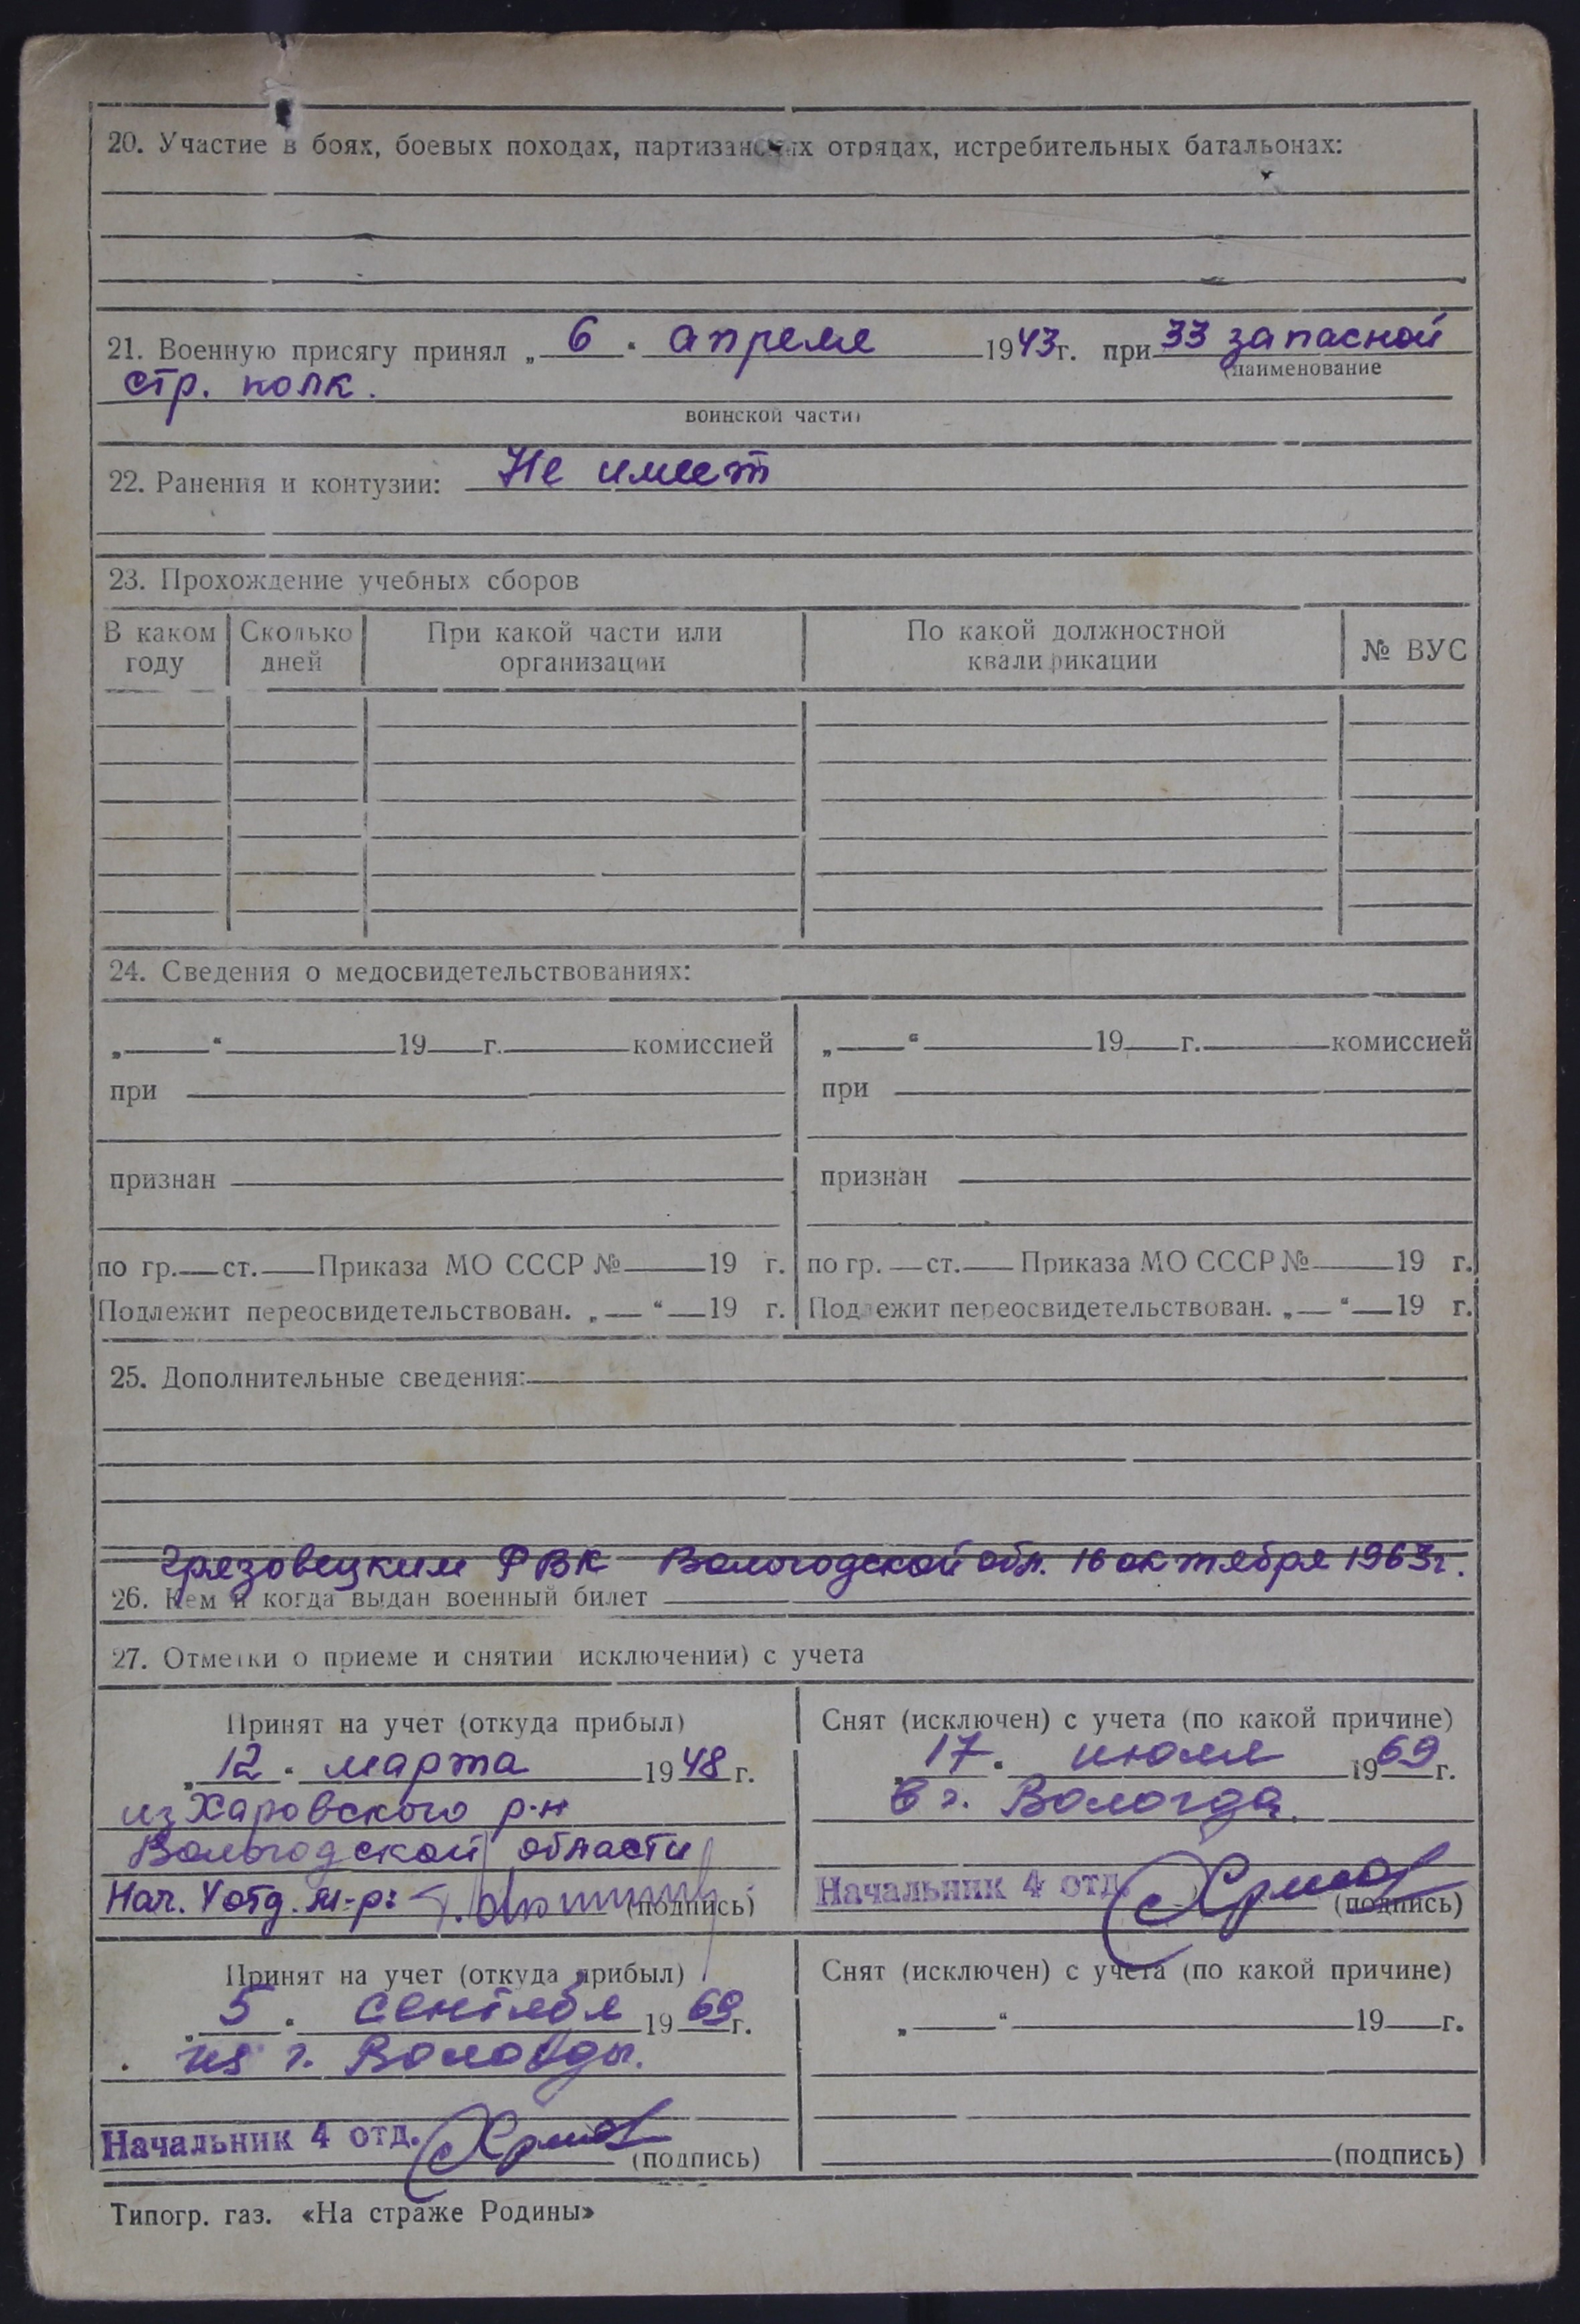 20. Участие в боях, боевых походах, партизанских отрядах, истребительных батальонах:
21. Военную присягу принял „ 6 " апреля 1943 г. при 33 запасной
(наименование
стр. полк.
воинской части)
22. Ранения и контузии: Не имеет
23. Прохождение учебных сборов
В каком году Сколько дней При какой части или организации По какой должностной квалификации № ВУС
24. Сведения о медосвидетельствованиях:
„ “ 19 г. комиссией „ “ 19 г. комиссией
при при
признан признан
по гр. ст. Приказа МО СССР № 19 г. по гр. ст. Приказа МО СССР № 19 г.
Подлежит переосвидетельствован. „ “ 19 г. Подлежит переосвидетельствован. „ “ 19 г.
25. Дополнительные сведения:
Грязовецким РВК Вологодской обл. 16 октября 1963г.
26. Кем и когда выдан военный билет
27. Отметки о приеме и снятии исключении) с учета
Принят на учет (откуда прибыл) Снят (исключен) с учета (по какой причине)
„ 12 " марта 1948 г. „ 17 " июля 1969 г.
из Харовского р-н в г. Вологда.
Вологодской области
Нач. 4 отд. м-р: (подпись) Начальник 4 отд. (подпись)
Принят на учет (откуда прибыл) Снят (исключен) с учета (по какой причине)
„ 5 " сентября 1969 г. „ “ 19 г.
из г. Вологды.
Начальник 4 отд. (подпись) (подпись)
Типогр. газ. «На страже Родины»